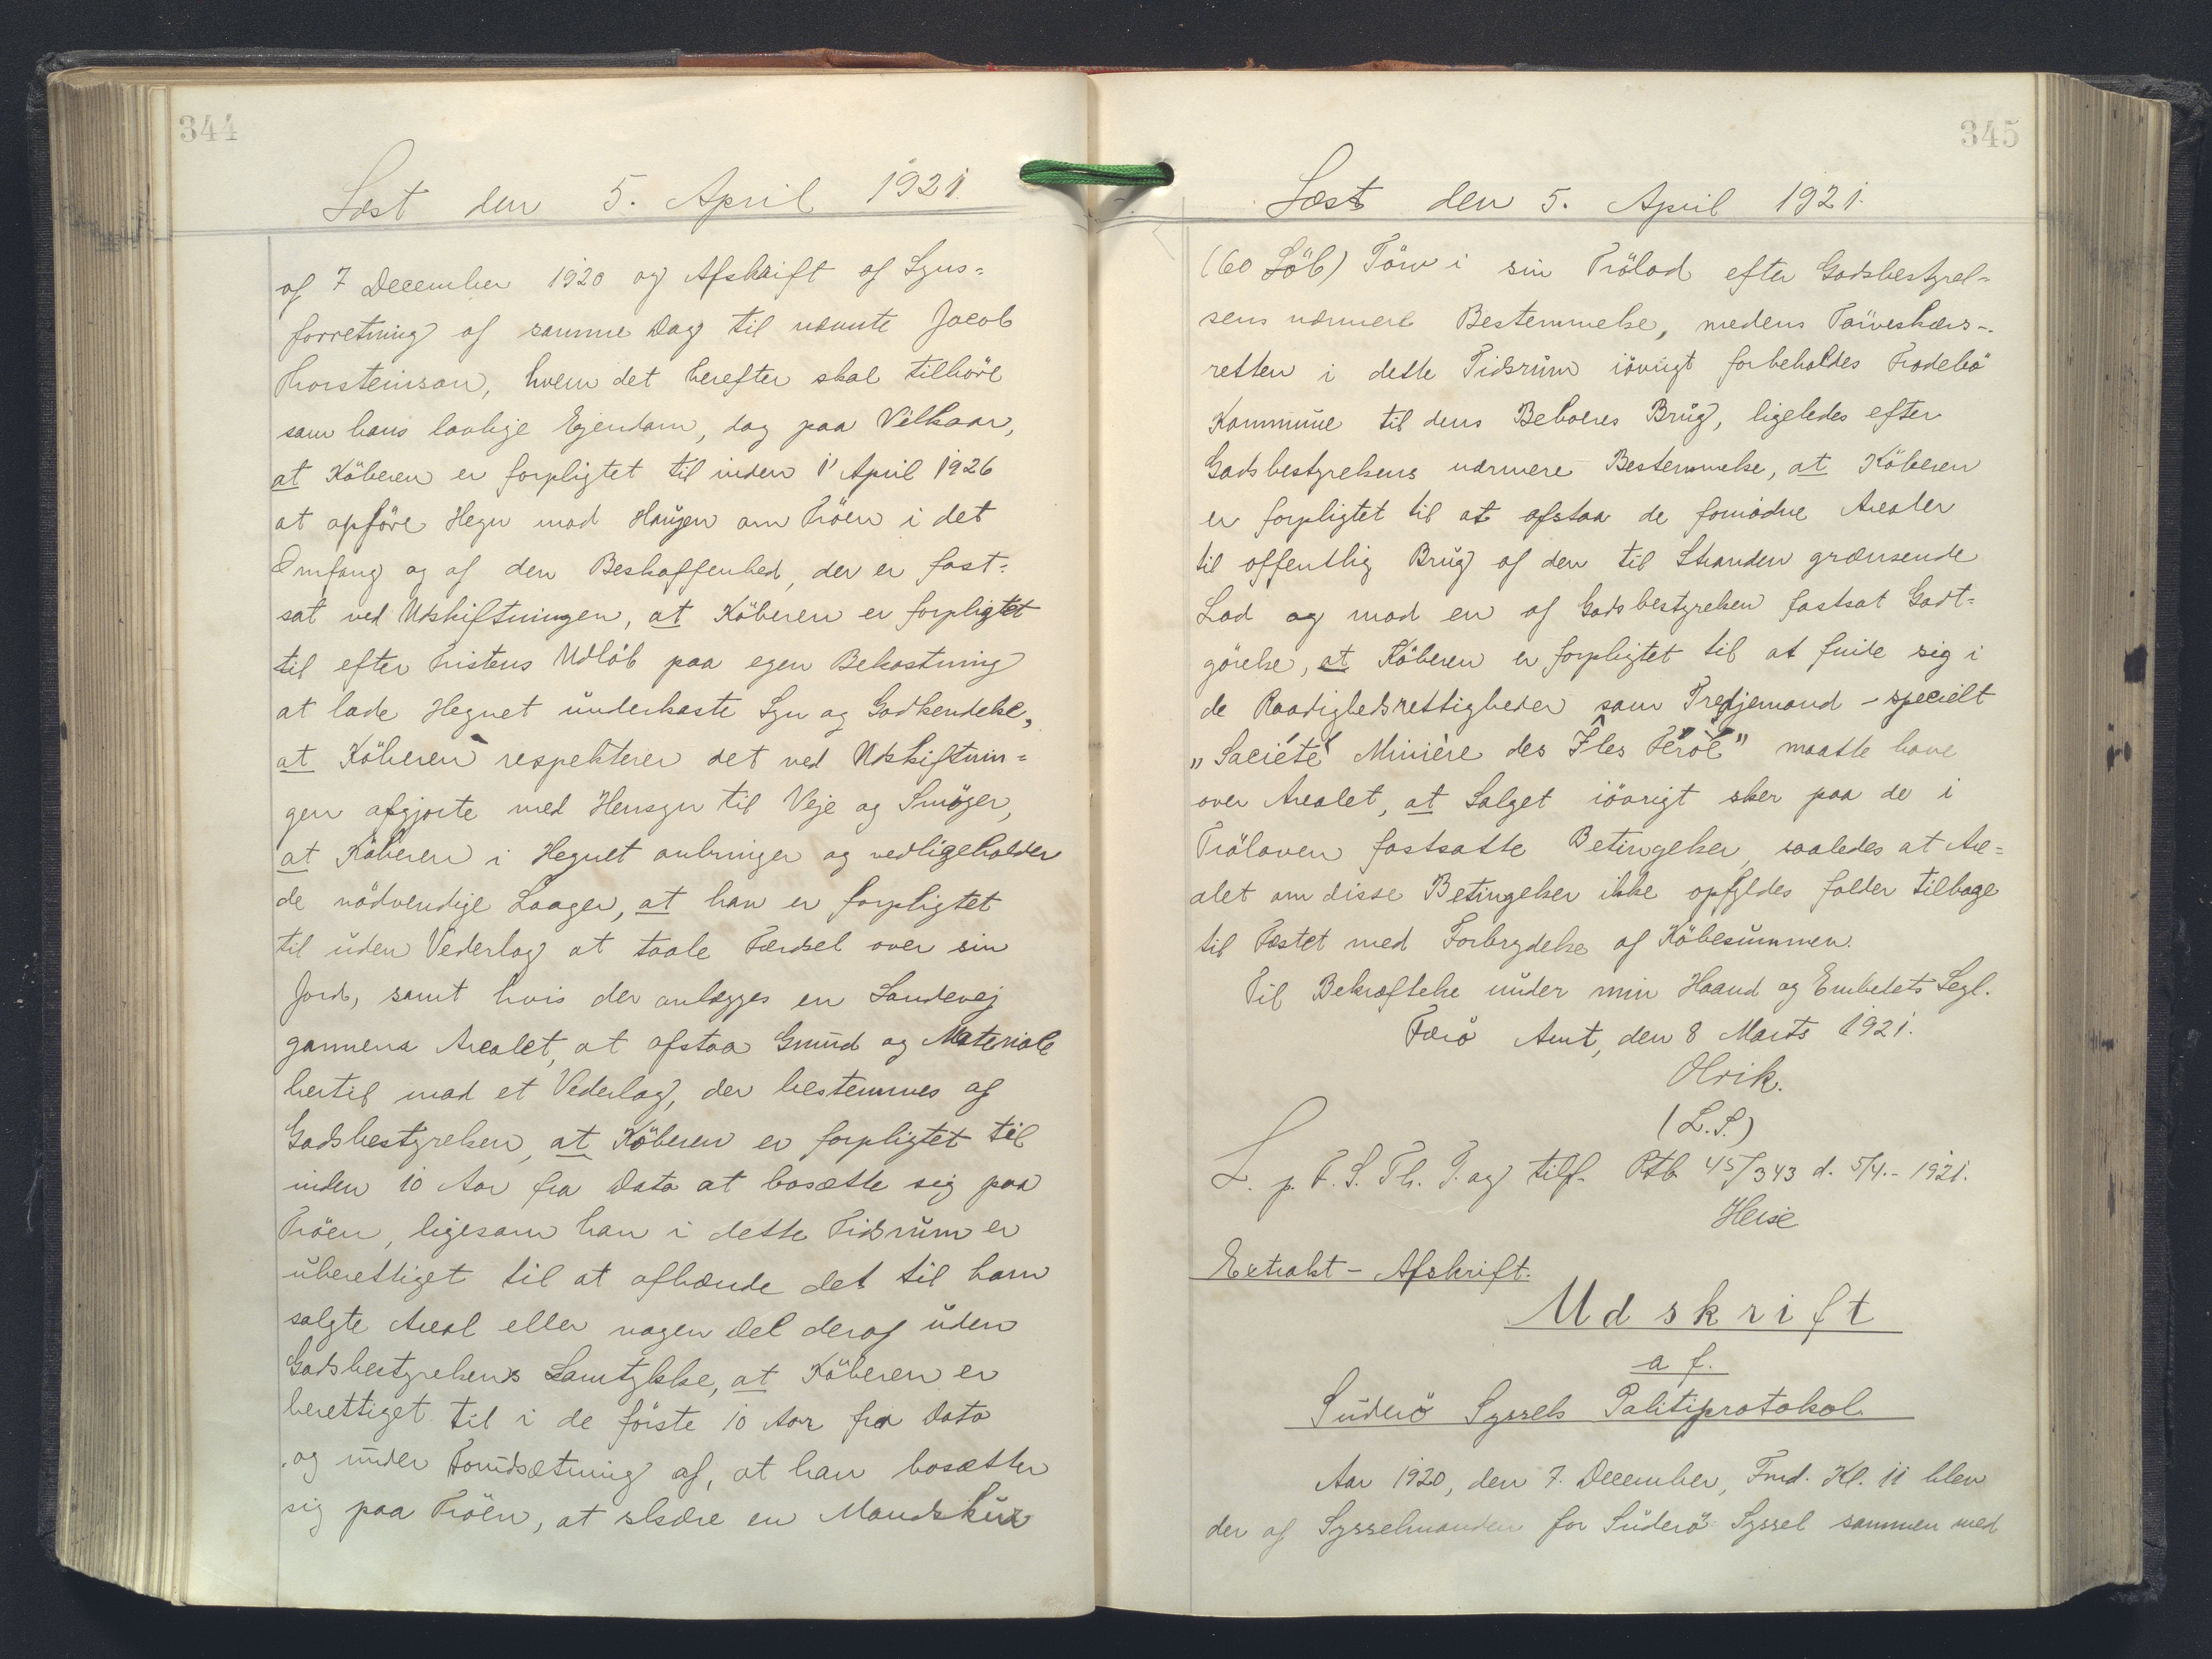 344
Læst den 5. April 1921.
af 7 December 1920 og Afskrift af Syns=
forretning af samme Dag til nævnte Jacob
Thorsteinson, hvem det herefter skal tilhöre
som hans lovlige Ejendom, dog paa Vilkaar,
at Köberen er forpligtet til inden 1' April 1926
at opföre Hegn mod Haugen om Tröen i det
Omfang og af den Beskaffenhed, der er fast=
sat ved Udskiftningen, at Köberen er forpligtet
til efter Fristens Udlöb paa egen Bekostning
at lade Hegnet underkaste Syn og Godkendelse,
at Köberen respekterer det ved Udskiftnin=
gen afgjorte med Hensyn til Veje og Smöger,
at Köberen i Hegnet anbringer og vedligeholder
de nödvendige Laager, at han er forpligtet
til uden Vederlag at taale Færdsel over sin
Jord, samt hvis der anlægges en Landevej
gennem Arealet, at afstaa Grund og Materiale
hertil mod et Vederlag, der bestemmes af
Godsbestyrelsen, at Köberen er forpligtet til
inden 10 Aar fra Dato at bosætte sig paa
Tröen, ligesom han i dette Tidsrum er
uberettiget til at afhænde det til ham
solgte Areal eller nogen Del deraf uden
Godsbestyrelsens Samtykke, at Köberen er
berettiget til i de förste 10 Aar fra Dato
og under Forudsætning af, at han bosætter
sig paa Tröen, at skære en Mandskur
345
Læst den 5. April 1921.
(60 Löb) Törv i sin Trölod efter Godsbestyrel=
sens nærmere Bestemmelse, medens Törveskærs-
retten i dette Tidsrum iövrigt forbeholdes Frodebö
Kommune til dens Beboeres Brug, ligeledes efter
Godsbestyrelsens nærmere Bestemmelse, at Köberen
er forpligtet til at afstaa de fornödne Arealer
til offentlig Brug af den til Stranden grænsende
Lod og mod en af Godsbestyrelsen fastsat Godt=
görelse, at Köberen er forpligtet til at finde sig i
de Raadighedsrettigheder som Tredjemand - specielt
„Société Minière des Îles Féroë" maatte have
over Arealet, at Salget iövrigt sker paa de i
Tröloven fastsatte Betingelser, saaledes at Are=
alet om disse Betingelser ikke opfyldes falder tilbage
til Fæstet med Forbrydelse af Köbesummen.
Til Bekræftelse under min Haand og Embedets Segl.
Færö Amt, den 8 Marts 1921.
Olrik.
(L.S.)
L. p. F. S. Th. T. og tilf. Ptb. 45/343 d. 5/4.- 1921.
Heise
Extrakt - Afskrift.
Udskrift
af.
Suderö Syssels Politiprotokol.
Aar 1920, den 7. December, Fmd. Kl. 11 blev
der af Sysselmanden for Suderö Syssel sammen med